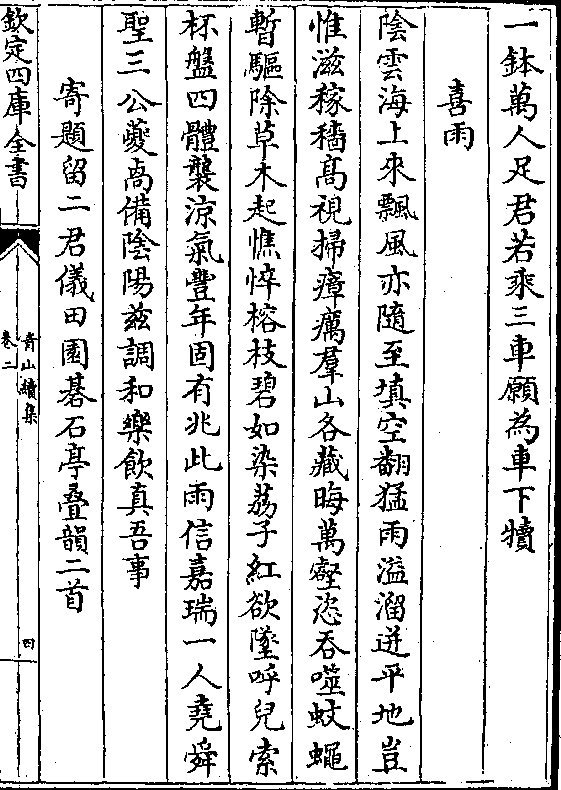 一鉢萬人足君若乘三車願為車下犢
喜雨
陰雲海上來飄風亦隨至填空翻猛雨溢溜迸平地豈
惟滋稼穡髙視掃瘴癘羣山各藏晦萬壑恣吞噬蚊蠅
暫驅除草木起憔悴榕枝碧如染荔子紅欲墜呼兒索
杯盤四體襲涼氣豐年固有兆此雨信嘉瑞一人堯舜
聖三公夔卨備陰陽兹調和樂飲真吾事
寄題留二君儀田園碁石亭疊韻二首
欽定四庫全書
青山續集
卷二
四